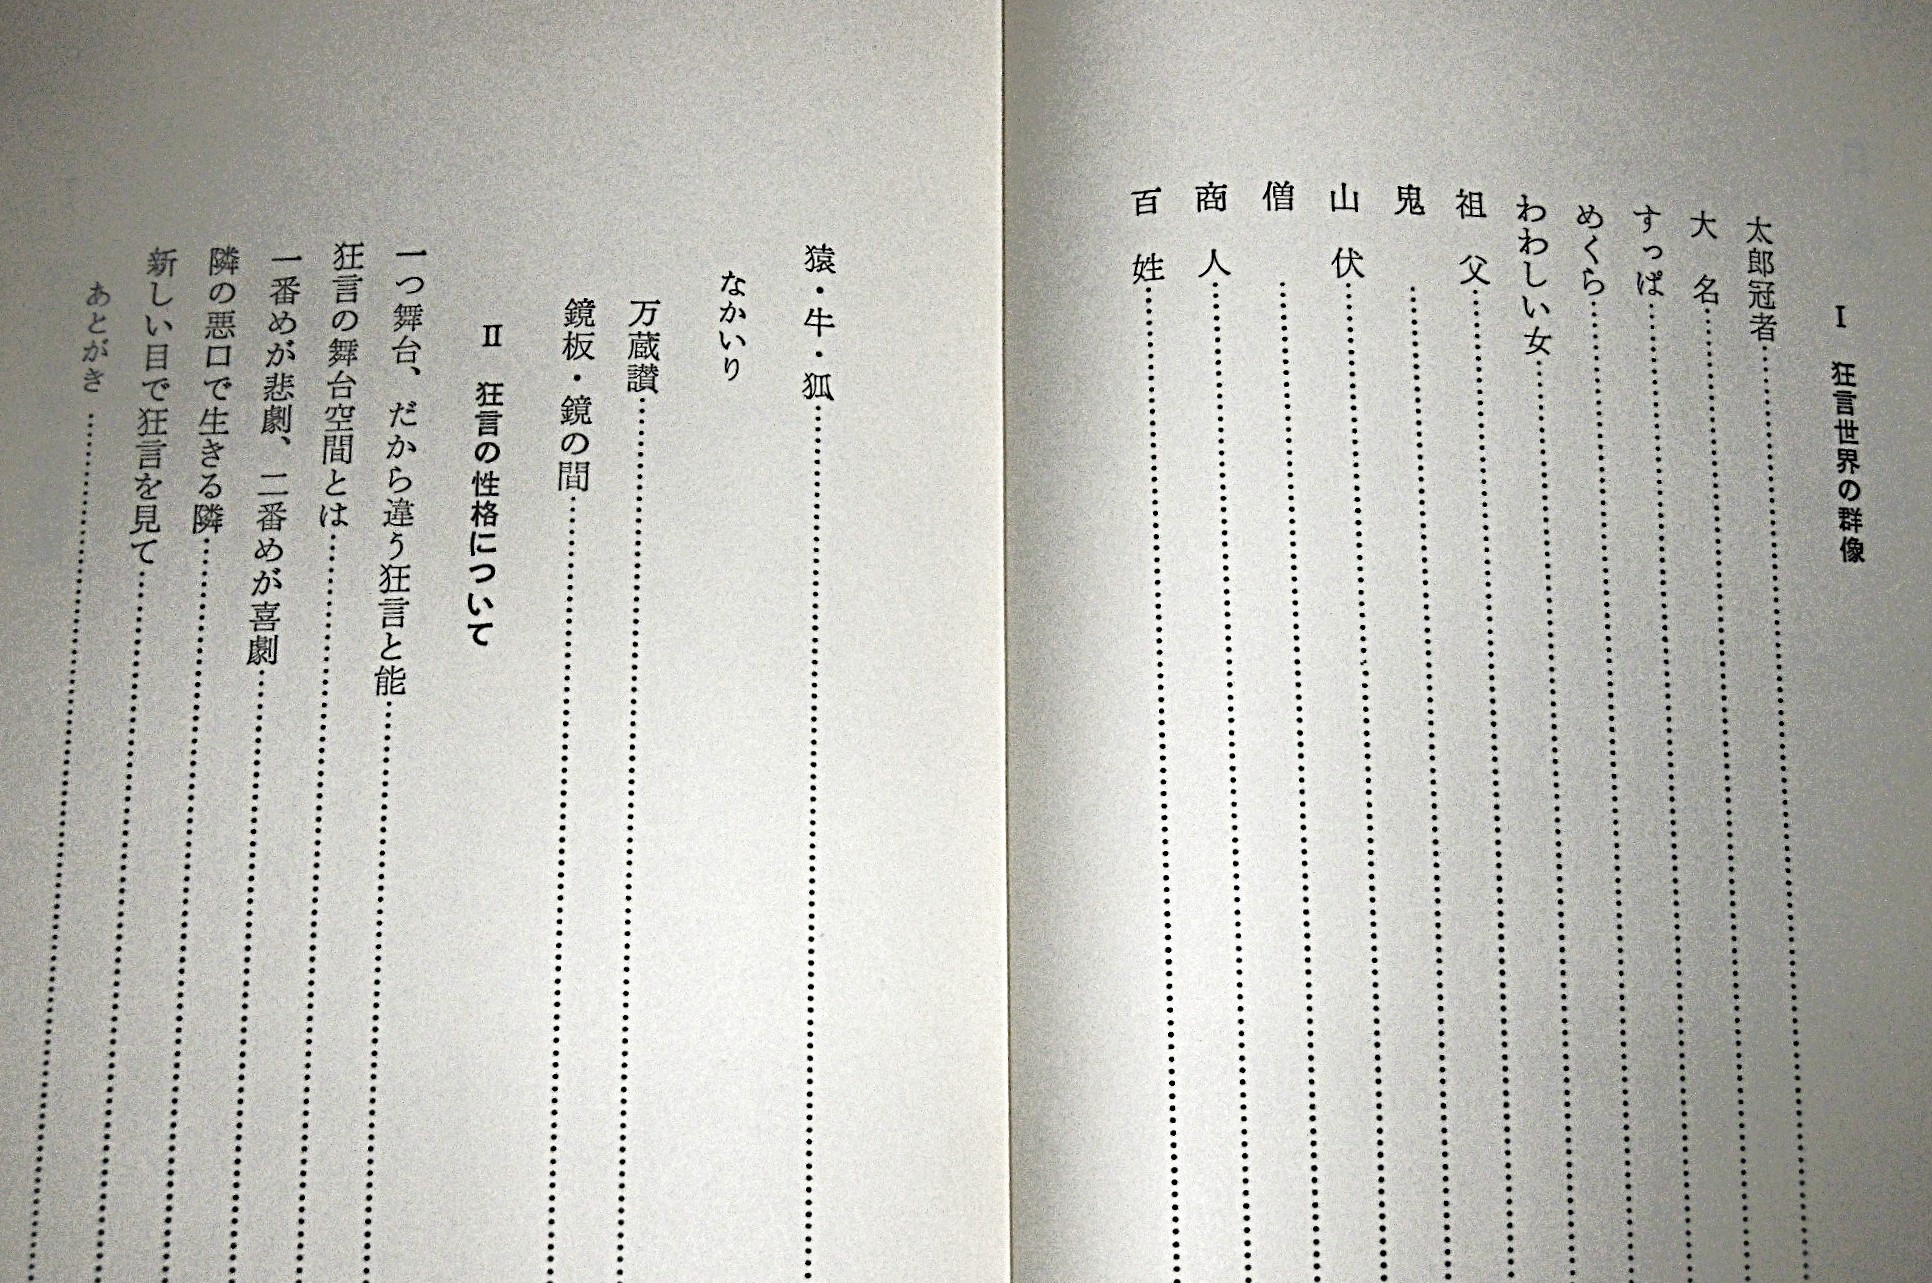 I 狂言世界の群像
太郎冠者
大名
すっぱ
めくら
わわしい女
祖父
鬼
山伏
僧
商人
百姓
猿・牛・狐
なかいり
万蔵讃
鏡板・鏡の間
II 狂言の性格について
一つ舞台、だから違う狂言と能
狂言の舞台空間とは
一番めが悲劇、二番めが喜劇
隣の悪口で生きる隣
新しい目で狂言を見て
あとがき